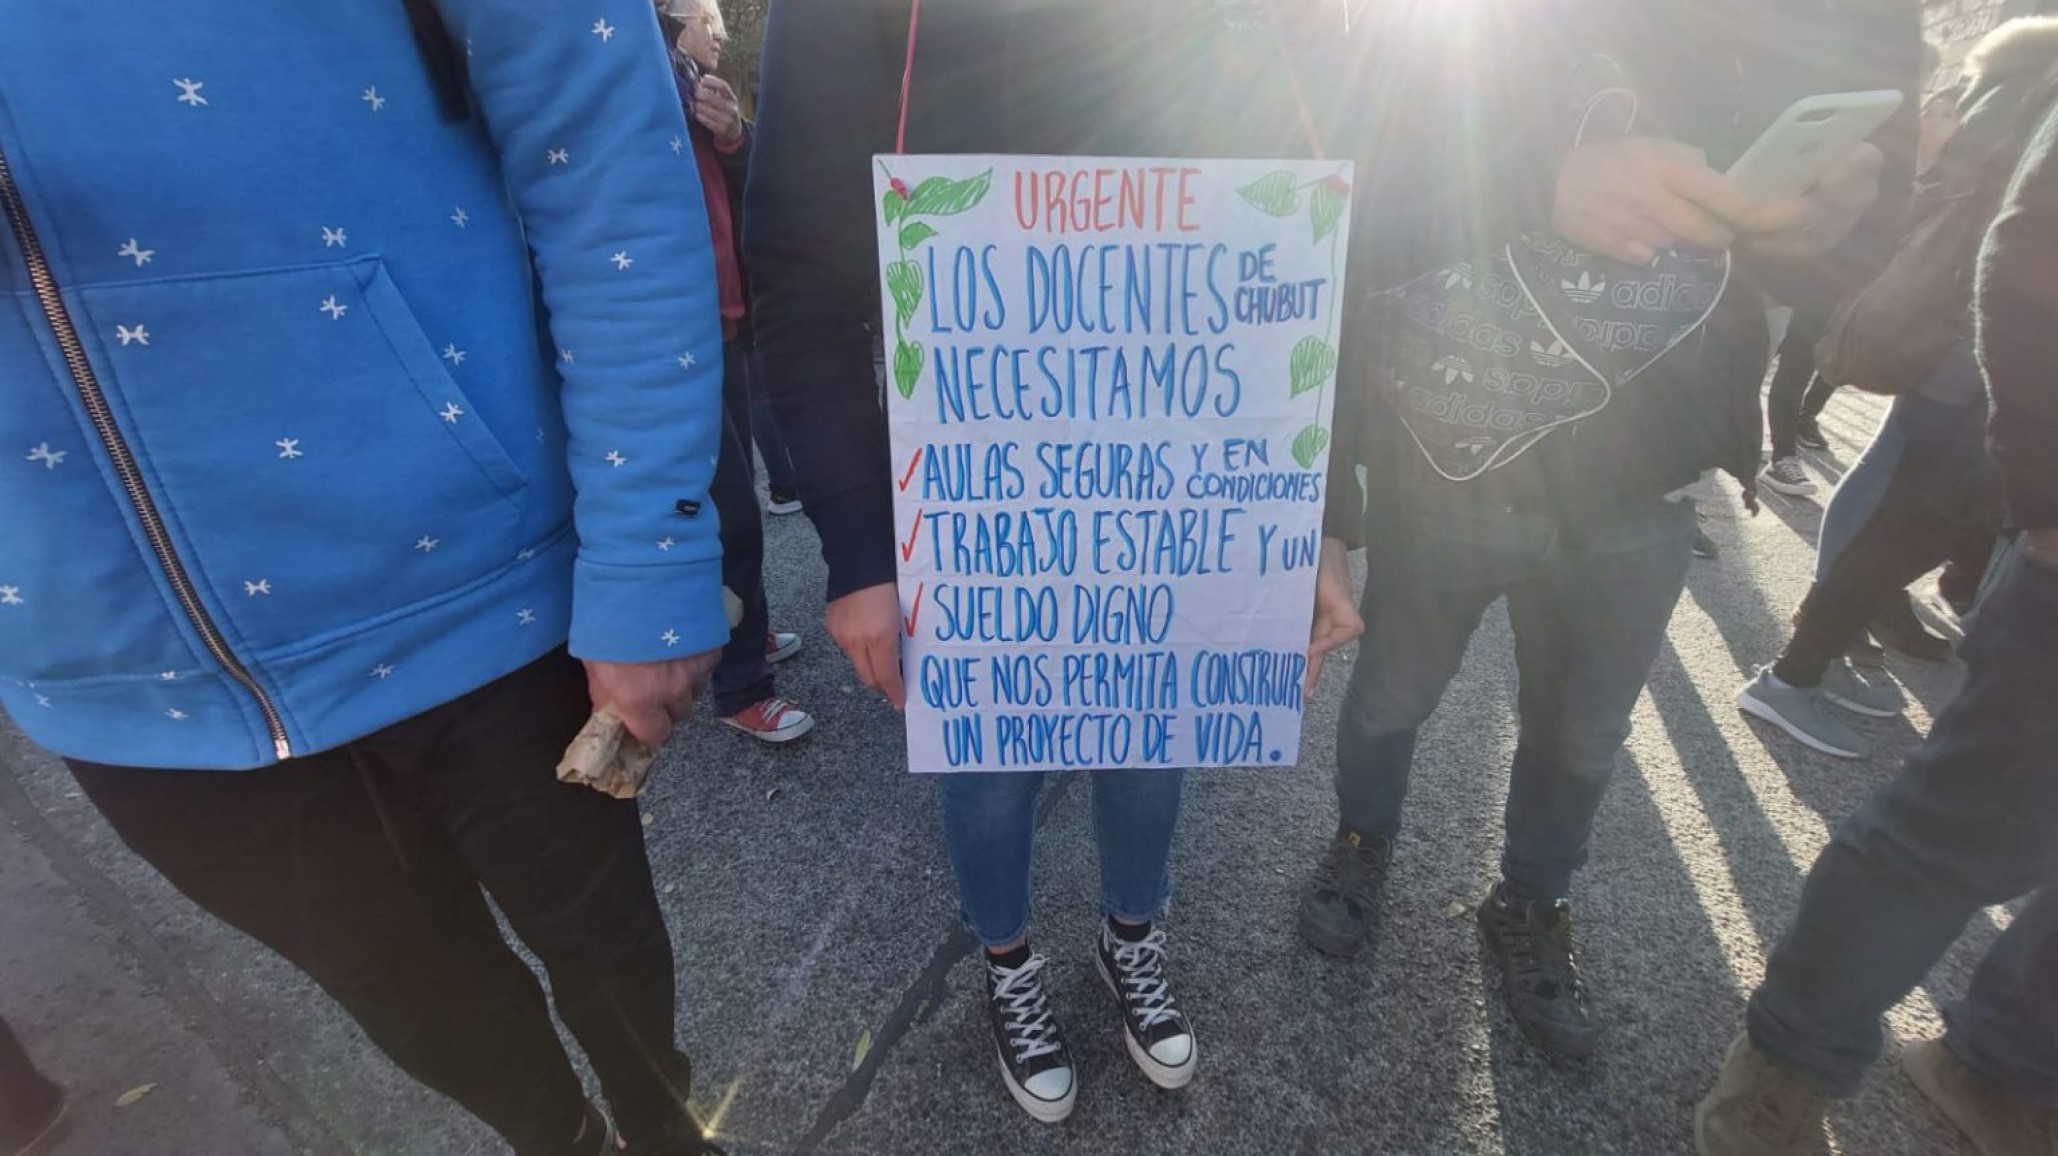 URGENTE
LOS DOCENTES DE CHUBUT
NECESITAMOS
✓ AULAS SEGURAS Y EN CONDICIONES
✓ TRABAJO ESTABLE Y UN
✓ SUELDO DIGNO
QUE NOS PERMITA CONSTRUIR
UN PROYECTO DE VIDA.
adidas
adidas